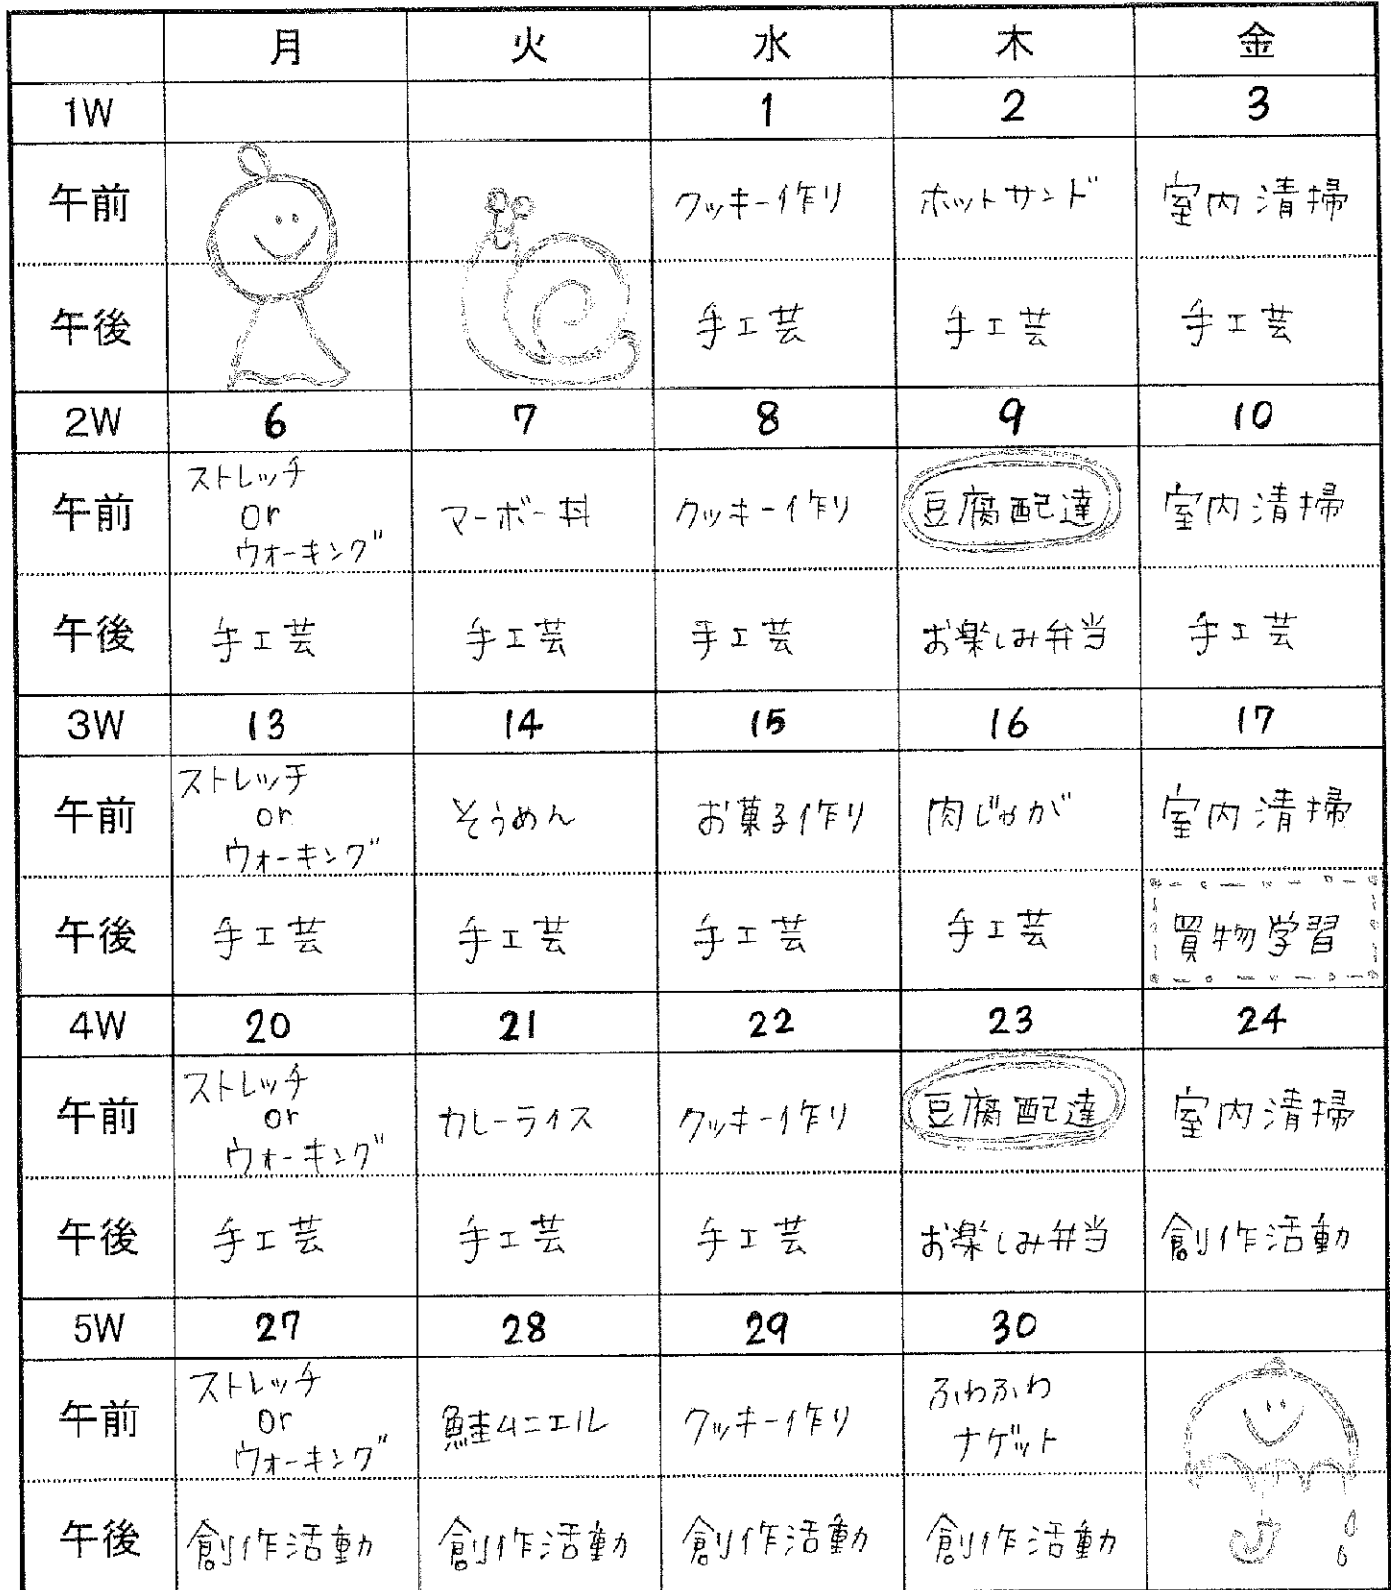 月 火 水 木 金
1W 1 2 3
午前 クッキー作り ホットサンド 室内清掃
午後 手工芸 手工芸 手工芸
2W 6 7 8 9 10
午前 ストレッチ or ウォーキング マーボー丼 クッキー作り 豆腐配達 室内清掃
午後 手工芸 手工芸 手工芸 お楽しみ弁当 手工芸
3W 13 14 15 16 17
午前 ストレッチ or ウォーキング そうめん お菓子作り 肉じゃが 室内清掃
午後 手工芸 手工芸 手工芸 手工芸 買物学習
4W 20 21 22 23 24
午前 ストレッチ or ウォーキング カレーライス クッキー作り 豆腐配達 室内清掃
午後 手工芸 手工芸 手工芸 お楽しみ弁当 創作活動
5W 27 28 29 30
午前 ストレッチ or ウォーキング 鮭ムニエル クッキー作り ふわふわ ナゲット
午後 創作活動 創作活動 創作活動 創作活動